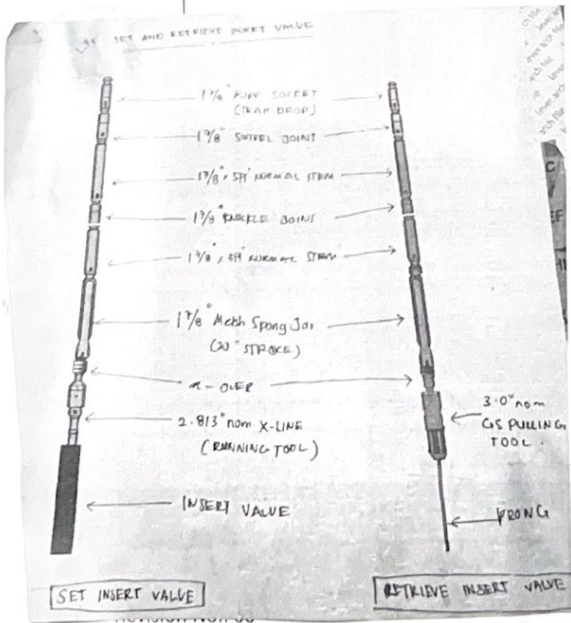 SET AND RETRIEVE INSERT VALUE
1 7/8" ROPE SOCKET
(TEAR DROP)
1 7/8" SWIVEL JOINT
NORMAL STEM
1 7/8" KNUCKLE JOINS
NORMAL STEM
1 7/8" Mech Spang Jar
(20" STROKE)
X-OVER
2.813" nom X-LINE
(RUNNING TOOL)
3.0" nom
GS PULLING
TOOL.
INSERT VALUE
PRONG
SET INSERT VALUE
RETRIEVE INSERT VALUE